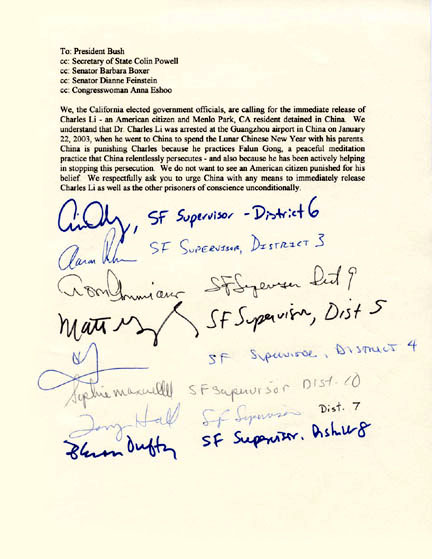 To: President Bush
cc: Secretary of State Colin Powell
cc: Senator Barbara Boxer
cc: Senator Dianne Feinstein
cc: Congresswoman Anna Eshoo
We, the California elected government officials, are calling for the immediate release of
Charles Li - an American citizen and Menlo Park, CA resident detained in China. We
understand that Dr. Charles Li was arrested at the Guangzhou airport in China on January
22, 2003, when he went to China to spend the Lunar Chinese New Year with his parents.
China is punishing Charles because he practices Falun Gong, a peaceful meditation
practice that China relentlessly persecutes - and also because he has been actively helping
in stopping this persecution. We do not want to see an American citizen punished for his
belief. We respectfully ask you to urge China with any means to immediately release
Charles Li as well as the other prisoners of conscience unconditionally.
SF Supervisor - District 6
Aaron SF Supervisor, District 3
Tom Ammiano SF Supervisor Dist 9
Matt SF Supervisor, Dist 5
SF Supervisor, District 4
Sophie Maxwell SF Supervisor Dist. 10
Tony Hall SF Supervisor Dist. 7
Bevan Dufty SF Supervisor. District 8